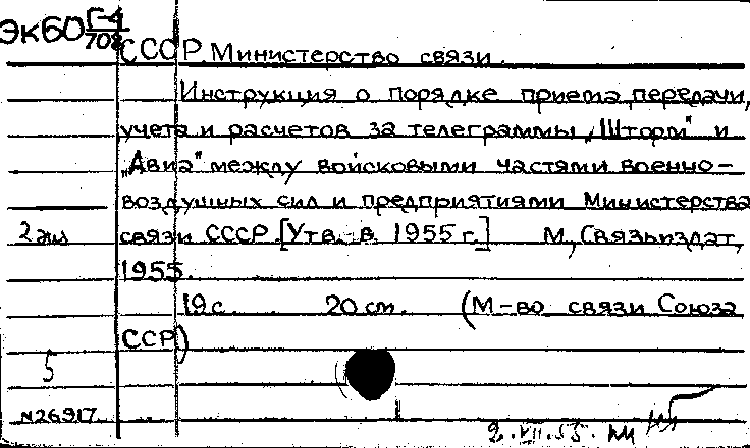 ЭкбО Г-4/708
СССР. Министерство связи.
Инструкция о порядке приема, передачи,
учета и расчетов за телеграммы „Шторм" и
„Авиа" между войсковыми частями военно-
воздушных сил и предприятиями Министерства
2 экз связи СССР. [Утв. в 1955 г.] М., Связьиздат,
1955.
19 с. 20 см. (М-во связи Союза
ССР)
5
N26917
2.VII.55.